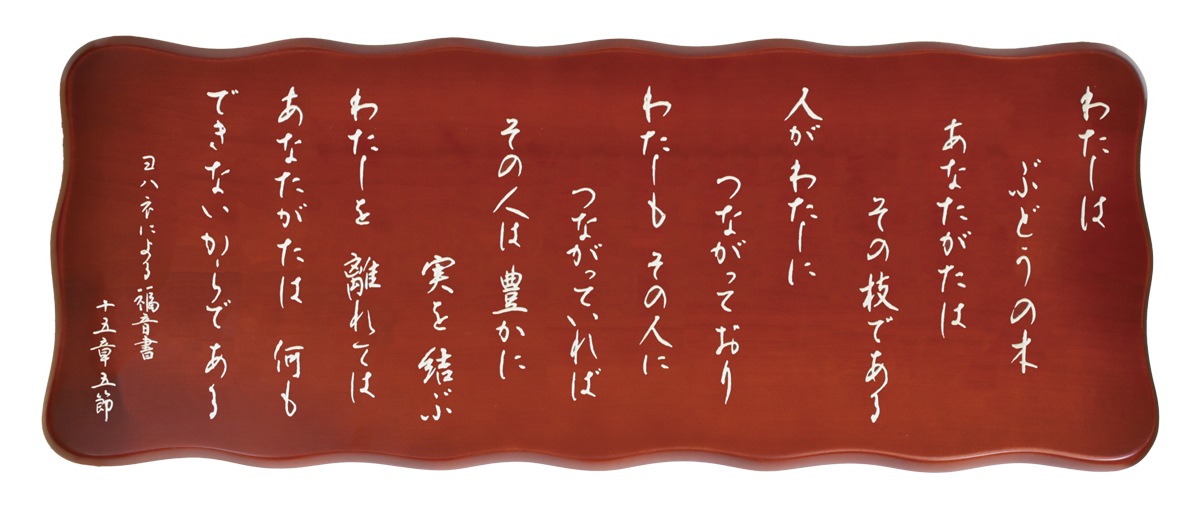 わたしは
ぶどうの木
あなたがたは
その枝である
人がわたしに
つながっており
わたしも その人に
つながっていれば
その人は 豊かに
実を 結ぶ
わたしを 離れては
あなたがたは 何も
できないからである
ヨハネによる福音書
十五章五節